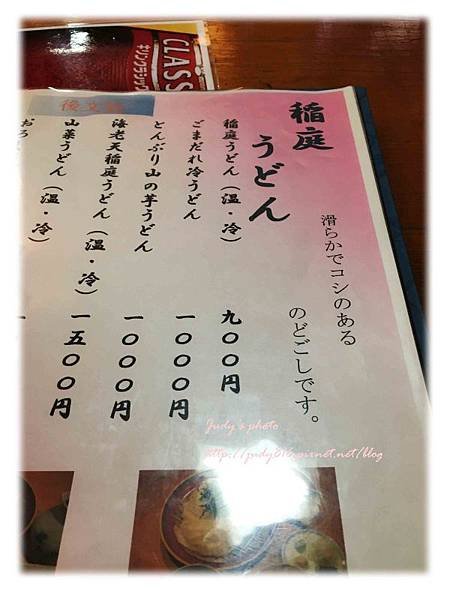 CLASS
キリンクラシック
稲庭うどん
滑らかでコシのある
のどごしです。
稲庭うどん（温・冷） 九〇〇円
ごまだれ冷うどん 一〇〇〇円
とんぶり山の芋うどん 一〇〇〇円
海老天稲庭うどん（温・冷） 一五〇〇円
山菜うどん（温・冷） 一
おろ
Judy's photo
http://judy016.pixnet.net/blog